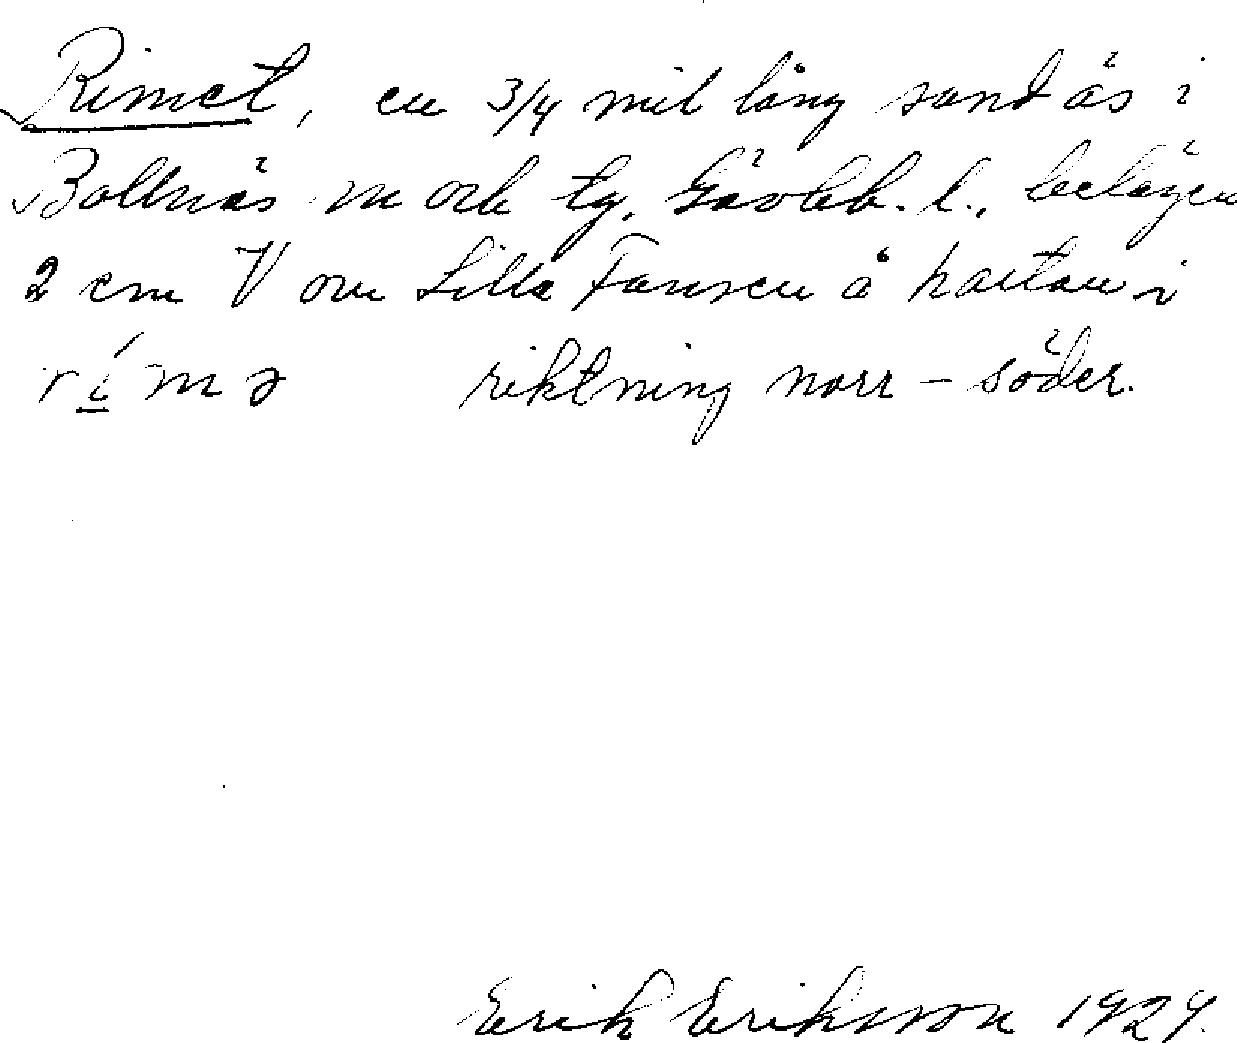 Rimet, en 3/4 mil lång sandås i
Bollnäs sn och tg, Gävleb. l., belägen
2 cm V om Lilla Fansen å kartan i
rímə riktning norr – söder.
Erik Eriksson 1929.